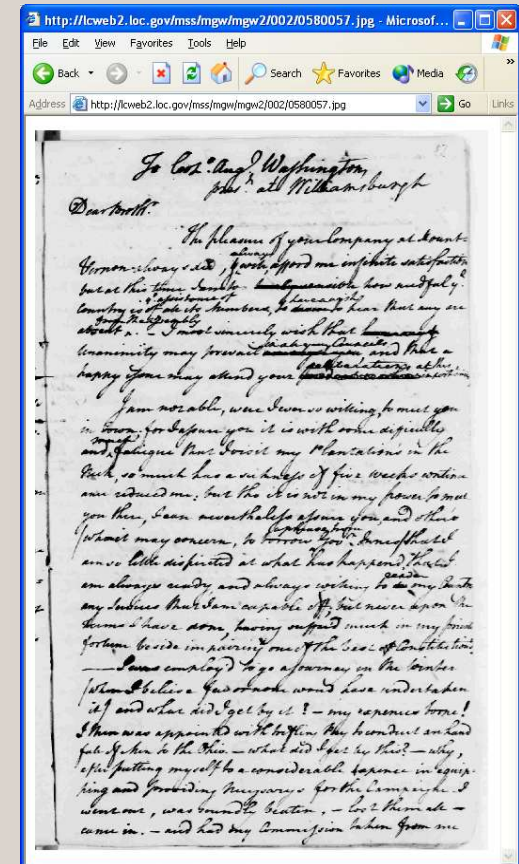 http://lcweb2.loc.gov/mss/mgw/mgw2/002/0580057.jpg - Microsof...
File Edit View Favorites Tools Help
Back Search Favorites Media »
Address http://lcweb2.loc.gov/mss/mgw/mgw2/002/0580057.jpg Go Links
To Colo. Augn. Washington
at Williamsburgh
Dear Brothr.
The pleasure of your Company at Mount
always
Vernon always did, & will, afford me infinite satisfaction
but at this time I am too how needful ye.
assistance of
Country is of all its Members, to hear that any are
absent. - I most sincerely wish that
Unanimity may prevail and that a
happy Issue may attend your
I am not able, were I ever so willing, to meet you
in Town, for I assure you it is with some difficulty
much
and fatigue that I visit my Plantations in the
Neck, so much has a sickness of five weeks continu
ance reduced me, but tho' it is not in my power to meet
you there, I can nevertheless assure you, and others
(whom it may concern, to borrow Govr. Innes) that I
am so little dispirited at what has happened, that I
am always ready and always willing to my Country
any Services that I am capable off; but never upon the
terms I have done, having suffer'd much in my private
fortune beside impairing one of the best of Constitutions
I was employ'd to go a journey in the Winter
(when I believe few or none woud have undertaken
it) and what did I get by it? - my expences borne!
I then was appointed with trifling Pay to conduct an hand
full of Men to the Ohio. - what did I get by this? - why,
after putting myself to a considerable expence in equip
ping and providing Necessarys for the Campaigne - I
went out, was soundly beaten, - lost them all -
came in. - and had my Commission taken from me